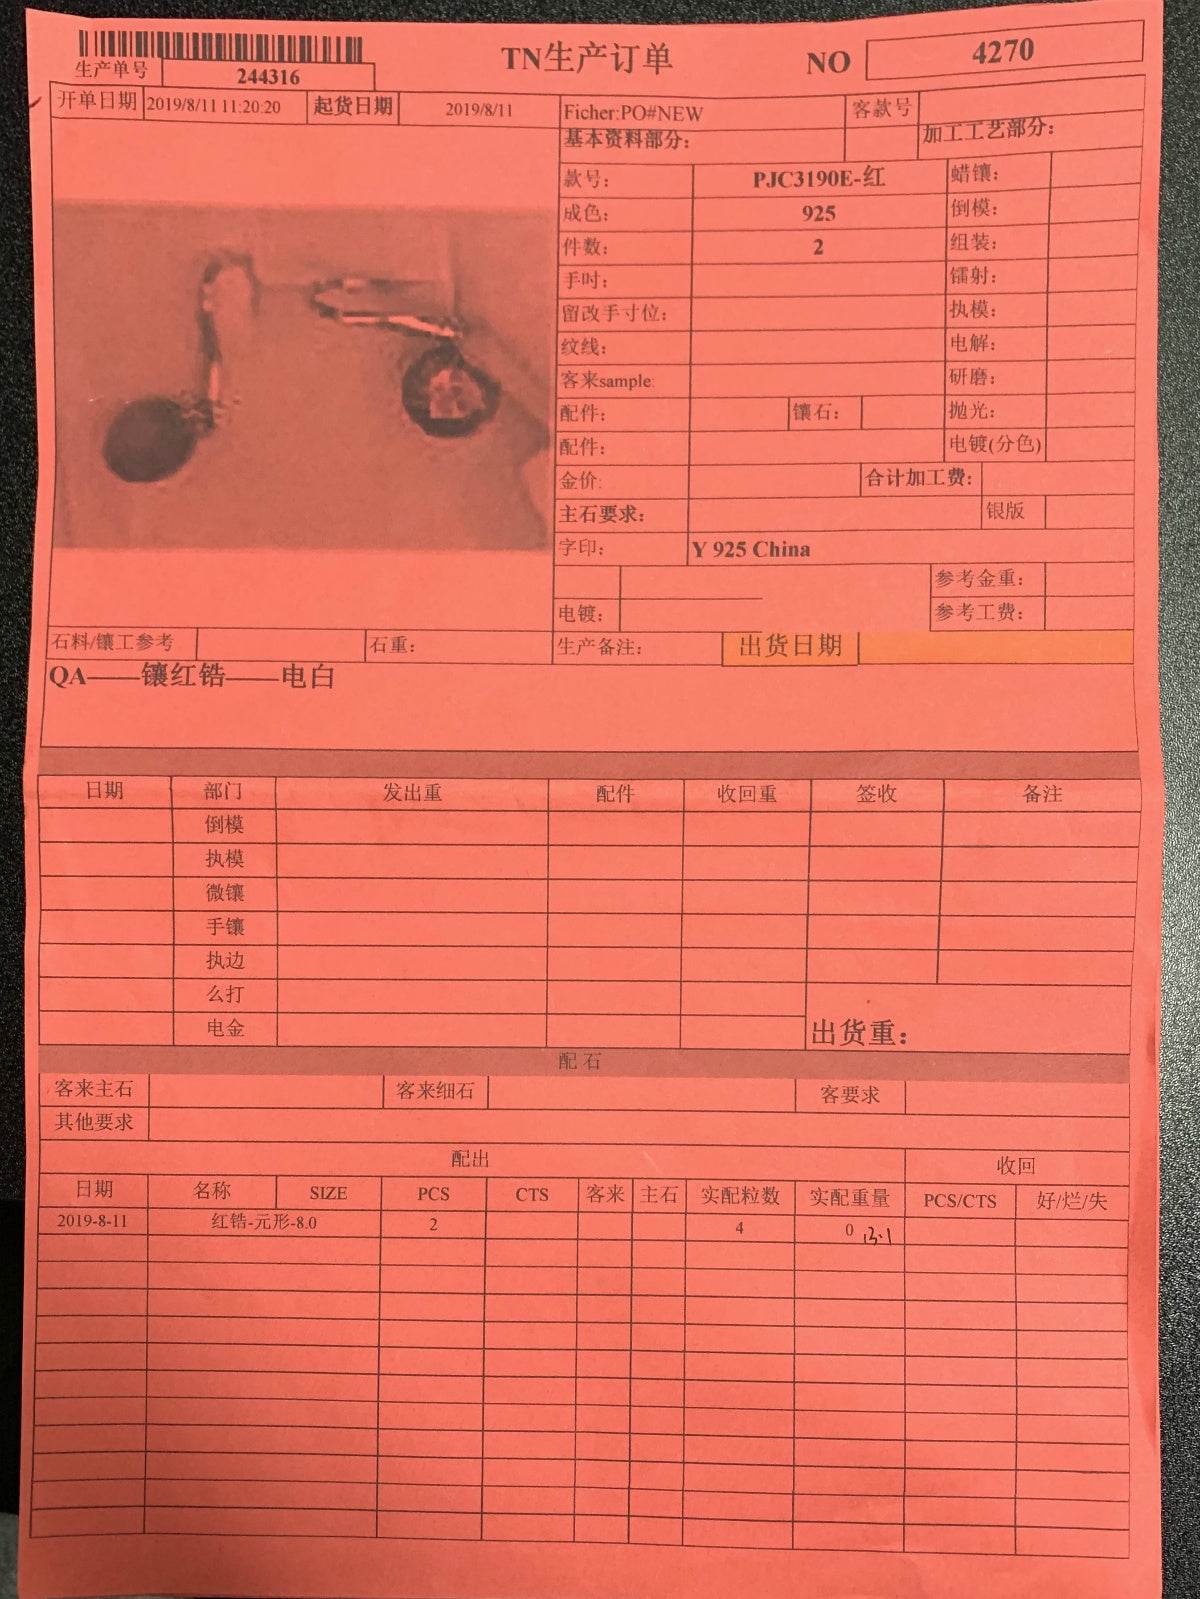 TN生产订单 NO 4270
生产单号 244316
开单日期 2019/8/11 11:20:20 起货日期 2019/8/11 Ficher:PO#NEW 客款号
基本资料部分： 加工工艺部分：
款号： PJC3190E-红 蜡镶：
成色： 925 倒模：
件数： 2 组装：
手时： 镭射：
留改手寸位： 执模：
纹线： 电解：
客来sample: 研磨：
配件： 镶石： 抛光：
配件： 电镀(分色)
金价: 合计加工费：
主石要求： 银版
字印： Y 925 China
参考金重：
电镀： 参考工费：
石料/镶工参考 石重： 生产备注： 出货日期
QA——镶红锆——电白
日期 部门 发出重 配件 收回重 签收 备注
倒模
执模
微镶
手镶
执边
么打
电金 出货重：
配 石
客来主石 客来细石 客要求
其他要求
配出 收回
日期 名称 SIZE PCS CTS 客来 主石 实配粒数 实配重量 PCS/CTS 好/烂/失
2019-8-11 红锆-元形-8.0 2 4 0 13.1